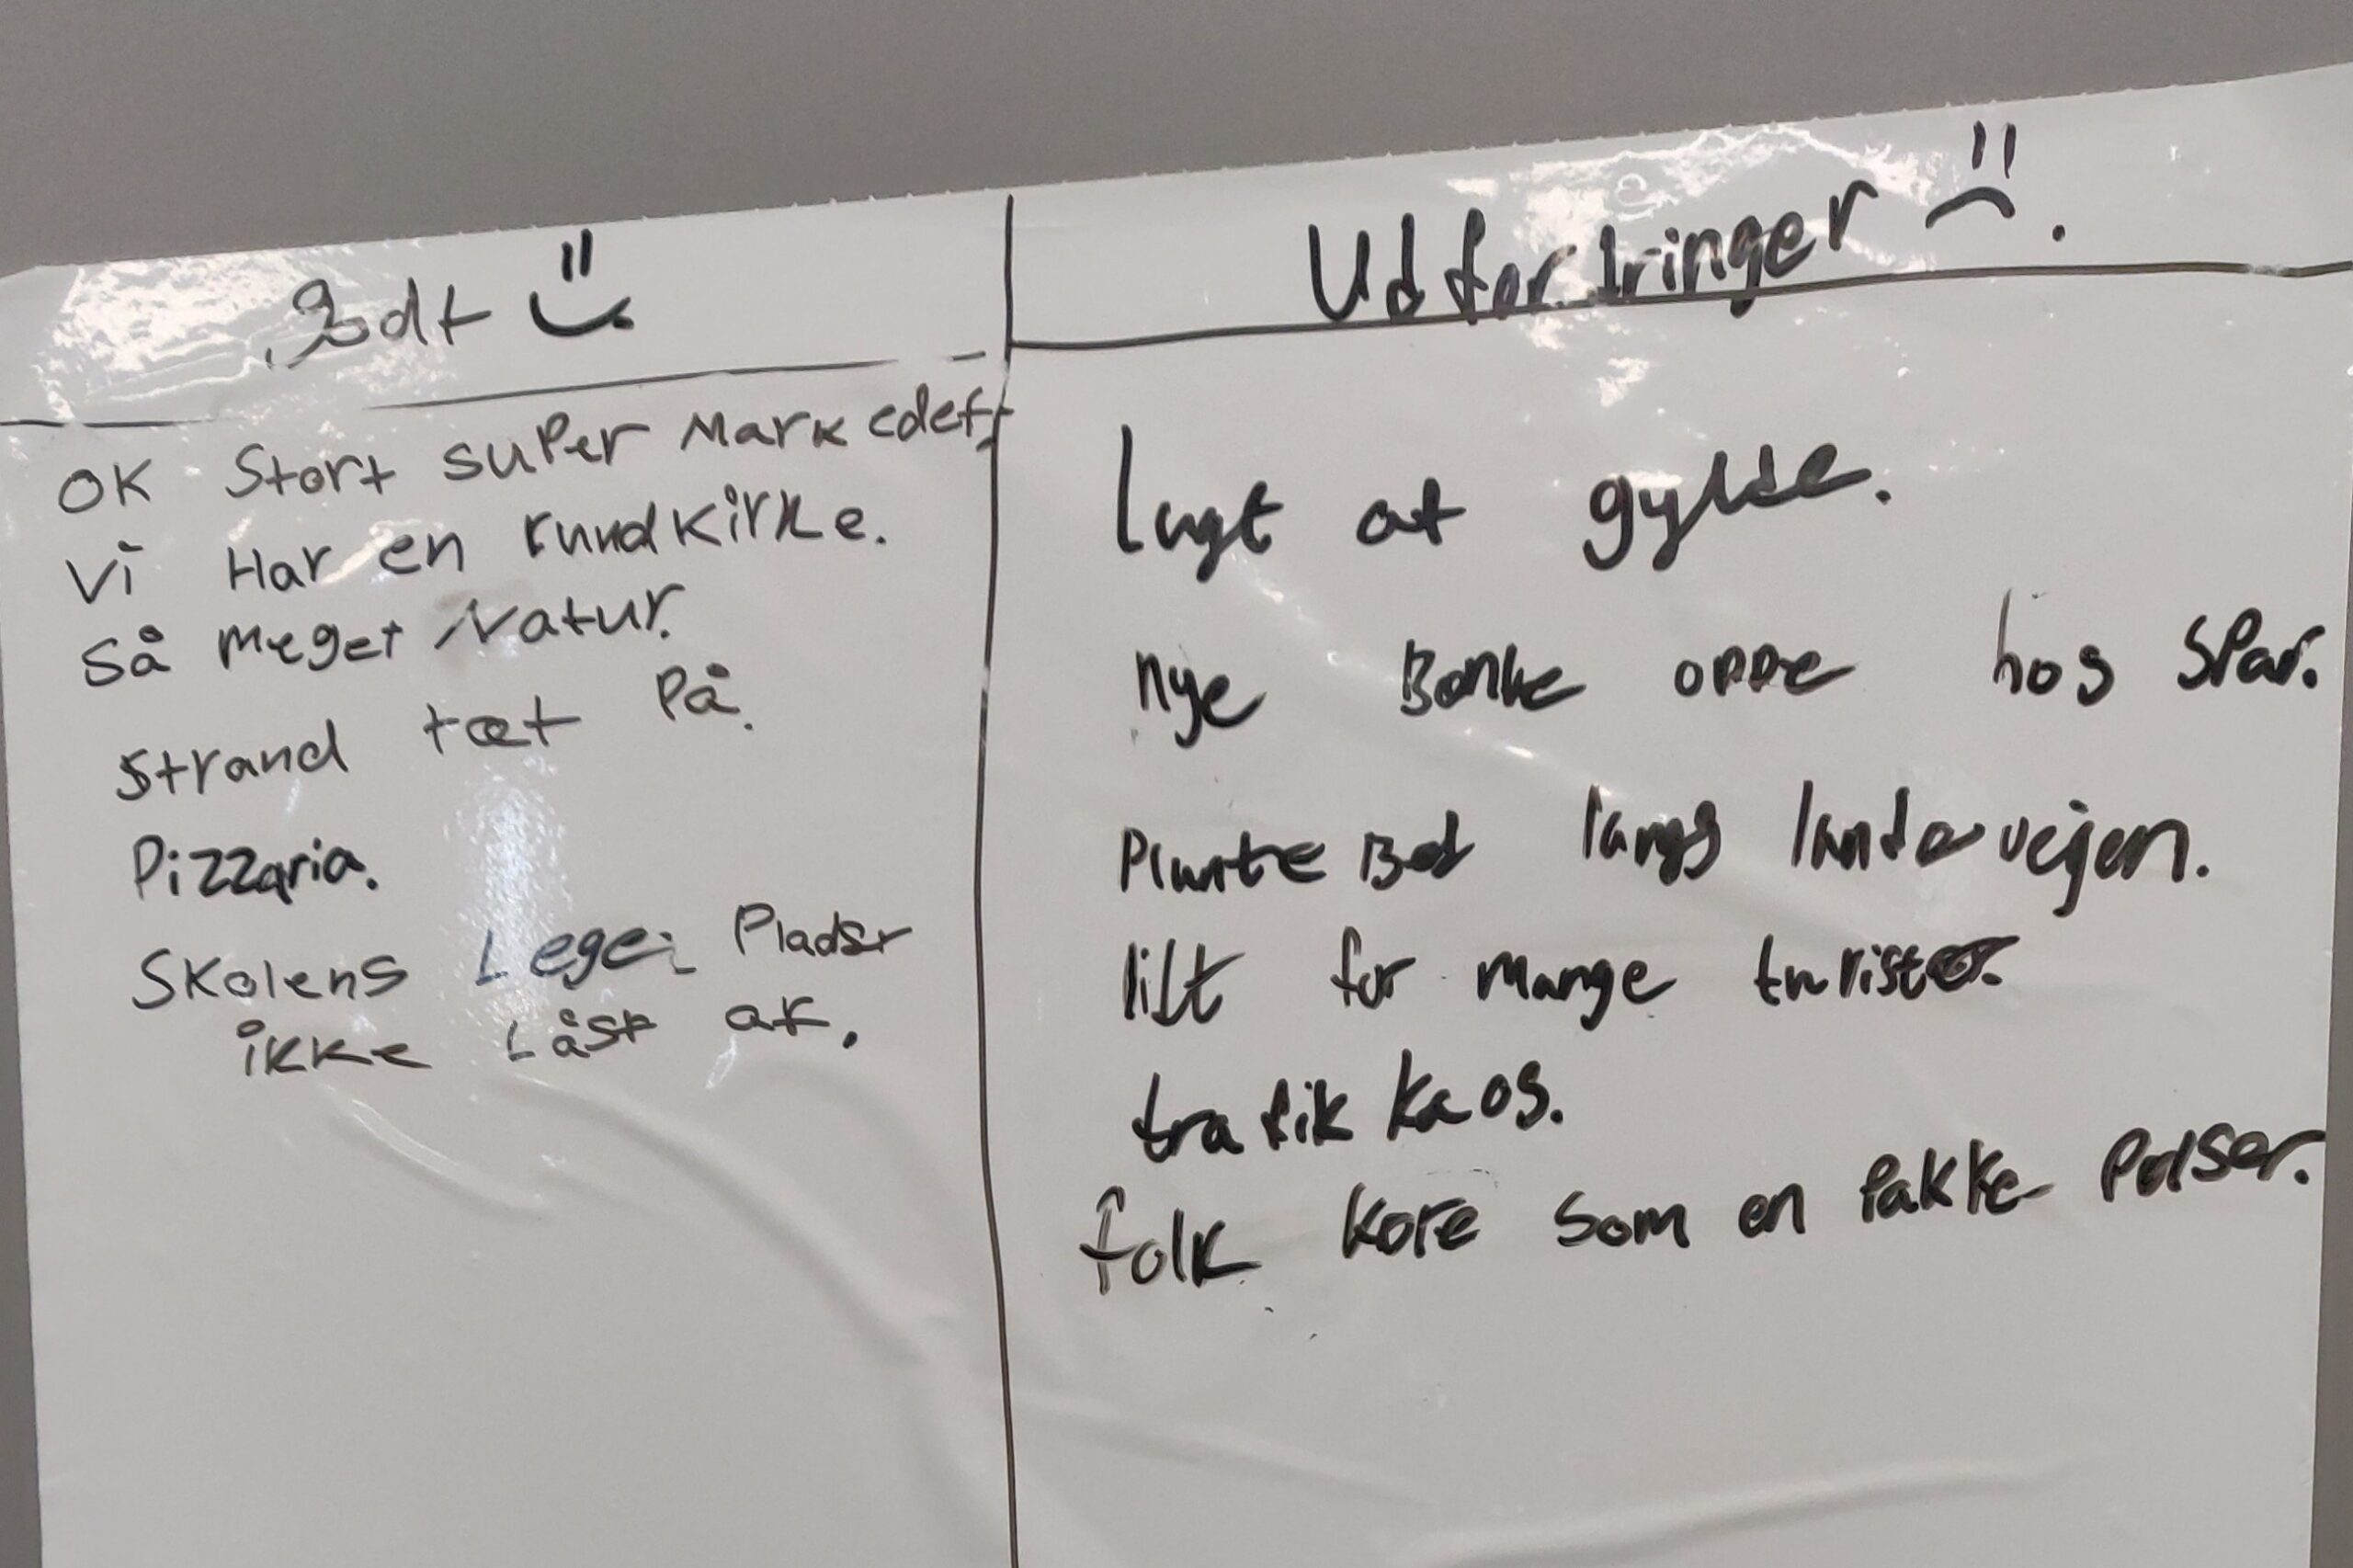 Godt
OK Stort super Markedet
Vi Har en rundkirke.
Så meget Natur.
Strand tæt På.
Pizzaria.
Skolens Lege- Pladser
ikke Låst af.
Udfordringer
lugt af gylle.
nye Banke oppe hos Spar.
Plante Bed langs landevejen.
lidt for mange turister.
trafik kaos.
folk køre som en Pakke Pølser.